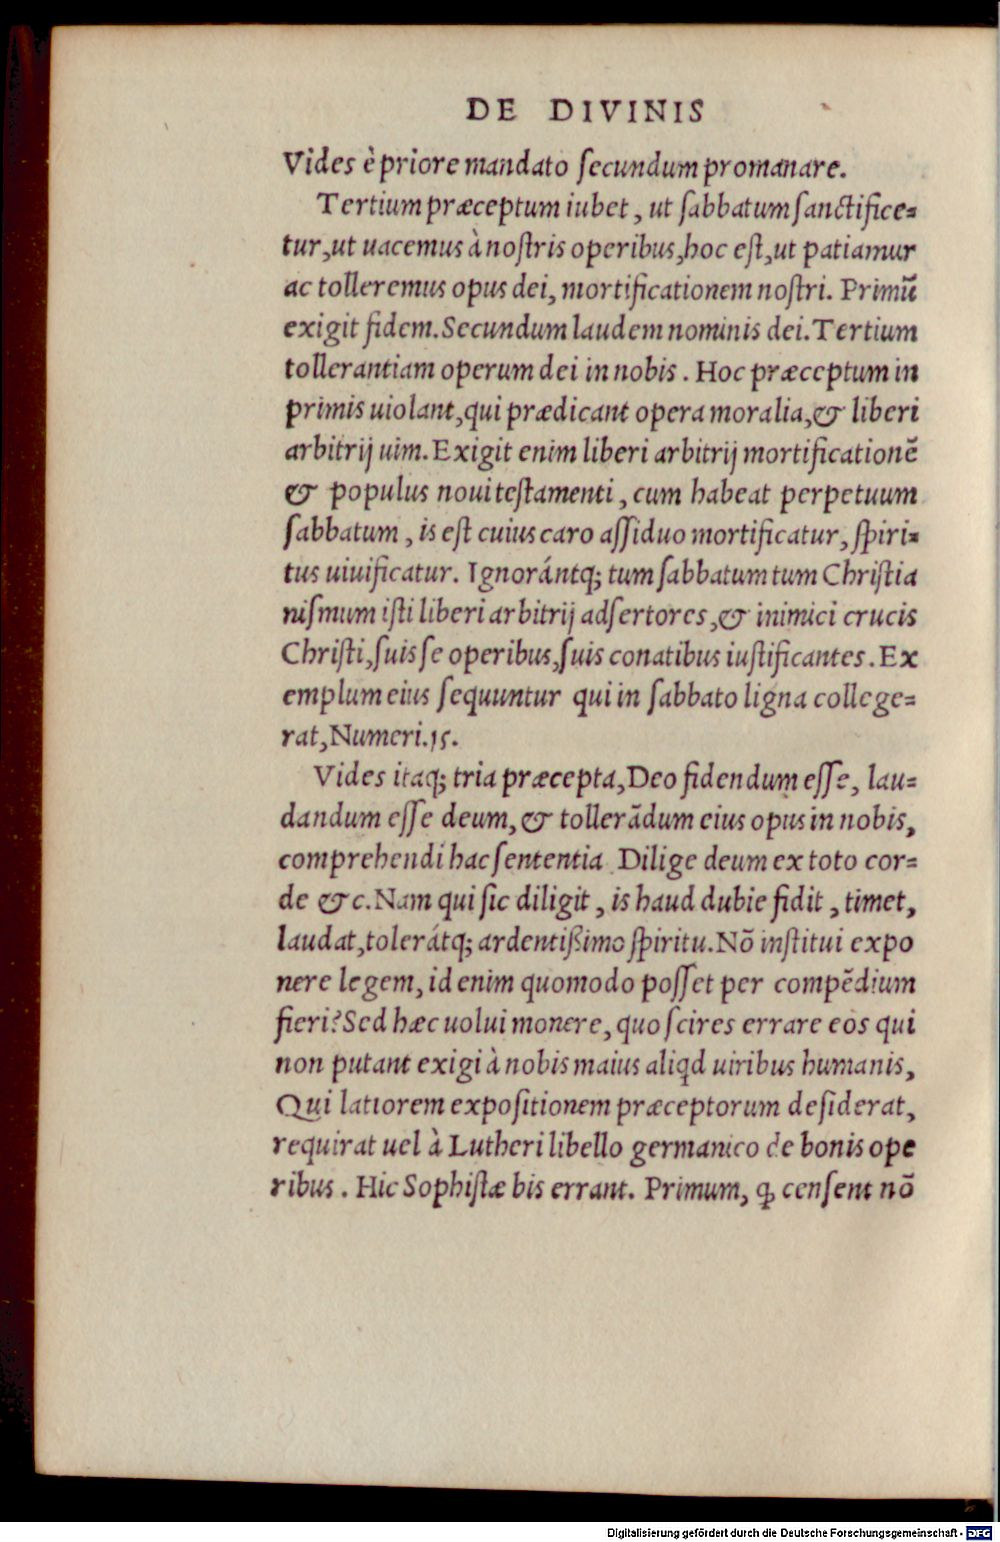 DE DIVINIS
Vides è priore mandato ſecundum promanare.
Tertium præceptum iubet, ut ſabbatum ſanctifice⸗
tur, ut uacemus à noſtris operibus, hoc eſt, ut patiamur
ac tolleremus opus dei, mortificationem noſtri. Primũ
exigit fidem. Secundum laudem nominis dei. Tertium
tollerantiam operum dei in nobis. Hoc præceptum in
primis uiolant, qui prædicant opera moralia, & liberi
arbitrij uim. Exigit enim liberi arbitrij mortificationẽ
& populus noui teſtamenti, cum habeat perpetuum
ſabbatum, is eſt cuius caro aſſiduo mortificatur, ſpiri⸗
tus uiuificatur. Ignorántq; tum ſabbatum tum Chriſtia
niſmum iſti liberi arbitrij adſertores, & inimici crucis
Chriſti, ſuis ſe operibus, ſuis conatibus iuſtificantes. Ex
emplum eius ſequuntur qui in ſabbato ligna college⸗
rat, Numeri.15.
Vides itaq; tria præcepta, Deo fidendum eſſe, lau⸗
dandum eſſe deum, & tollerãdum eius opus in nobis,
comprehendi hac ſententia Dilige deum ex toto cor⸗
de &c. Nam qui ſic diligit, is haud dubie fidit, timet,
laudat, tolerátq; ardentißimo ſpiritu. Nõ inſtitui expo
nere legem, id enim quomodo poſſet per compẽdium
fieri? Sed hæc uolui monere, quo ſcires errare eos qui
non putant exigi à nobis maius aliqd uiribus humanis,
Qui latiorem expoſitionem præceptorum deſiderat,
requirat uel à Lutheri libello germanico de bonis ope
ribus. Hic Sophiſtæ bis errant. Primum, ꝙ cenſent nõ
Digitalisierung gefördert durch die Deutsche Forschungsgemeinschaft - DFG